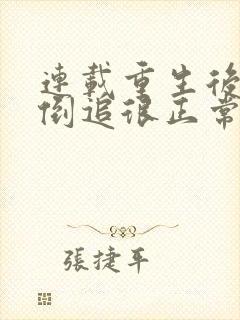 連載重生後
倒追很正常
張捷平